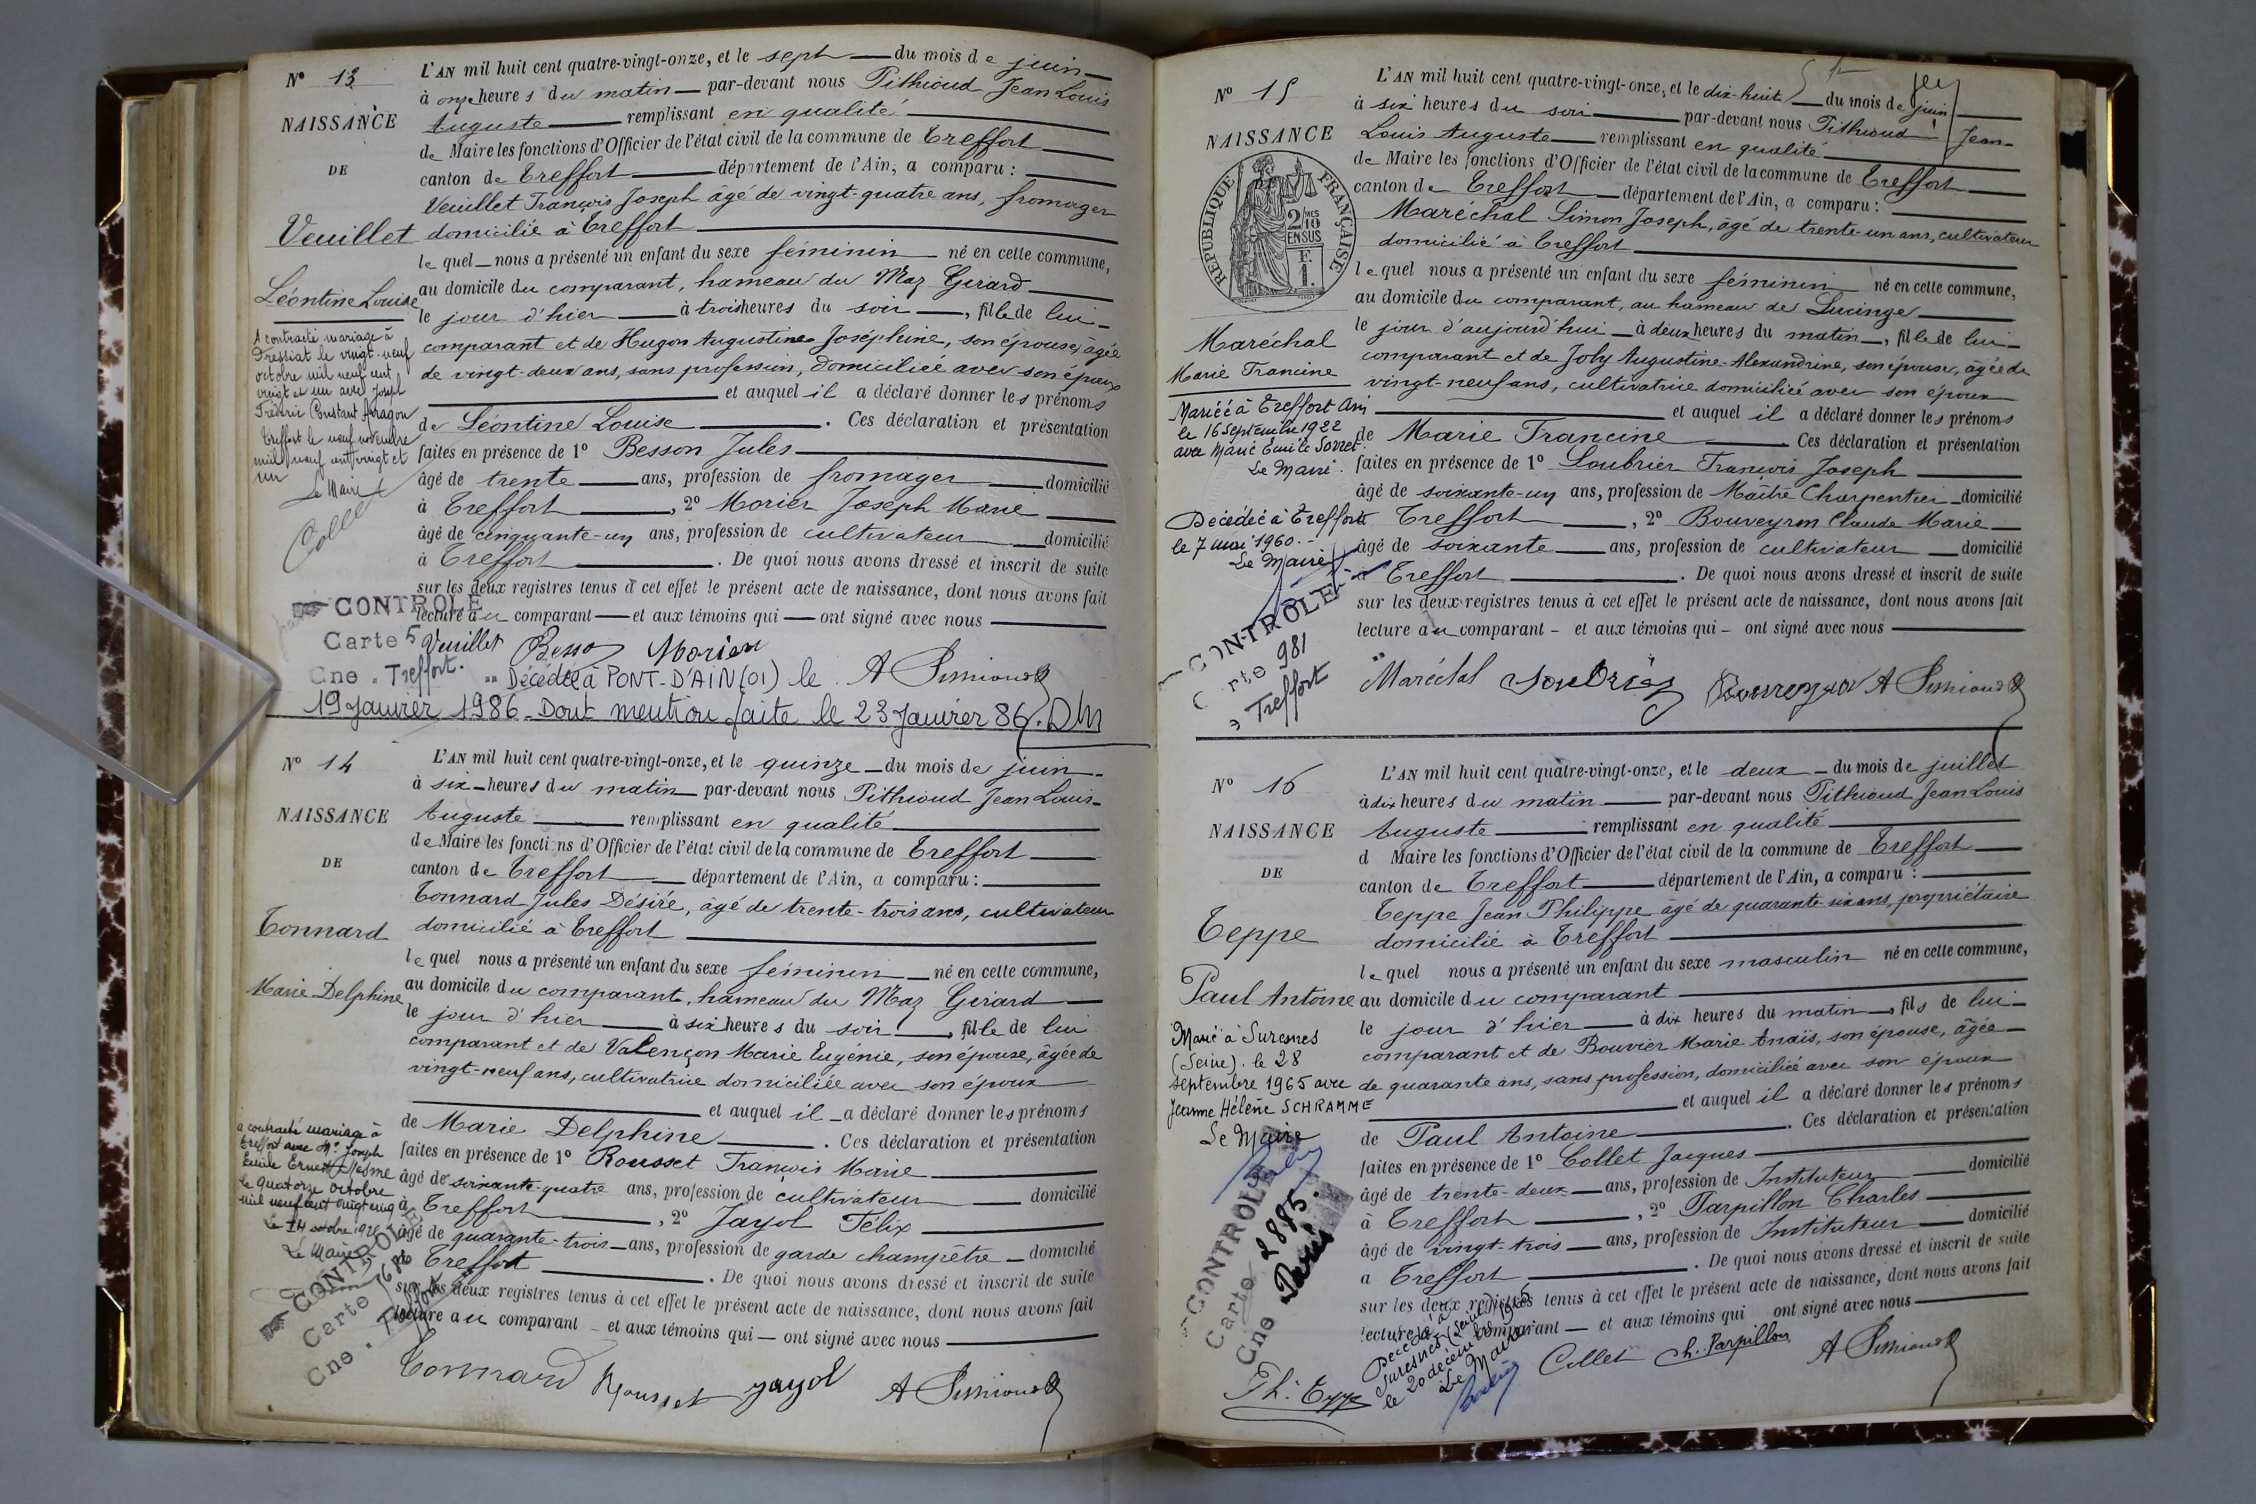 N° 13
NAISSANCE
DE
Veuillet
Léontine Louise
A contracté mariage à
Dressiat le vingt-neuf
octobre mil neuf cent
vingt et un avec Joseph
Frédéric Constant Aragon
Treffort le neuf novembre
mil neuf cent vingt et
un
Le Maire
L'AN mil huit cent quatre-vingt-onze, et le sept du mois de juin
à onze heures du matin par-devant nous Pithioud Jean Louis
Auguste remplissant en qualité
de Maire les fonctions d'Officier de l'état civil de la commune de Treffort
canton de Treffort département de l'Ain, a comparu :
Veuillet François Joseph âgé de vingt-quatre ans, fromager
domicilié à Treffort
lequel nous a présenté un enfant du sexe féminin né en cette commune,
au domicile du comparant, hameau du Maz Gerard
le jour d'hier à trois heures du soir, fille de lui
comparant et de Hugon Augustine Joséphine, son épouse, âgée
de vingt-deux ans, sans profession, domiciliée avec son époux
et auquel il a déclaré donner les prénoms
de Léontine Louise. Ces déclaration et présentation
faites en présence de 1° Besson Jules
âgé de trente ans, profession de fromager domicilié
à Treffort, 2° Morier Joseph Marie
âgé de cinquante-un ans, profession de cultivateur domicilié
à Treffort. De quoi nous avons dressé et inscrit de suite
sur les deux registres tenus à cet effet le présent acte de naissance, dont nous avons fait
lecture au comparant et aux témoins qui ont signé avec nous
CONTROLE
Carte 5
Cne . Treffort.
Veuillet Besson Morier
Décédée à PONT-D'AIN (01) le A Pithioud
19 Janvier 1986. Dont mention faite le 23 Janvier 86.
N° 14
NAISSANCE
DE
Tonnard
Marie Delphine
a contracté mariage à
Treffort avec Mr Joseph
Emile Ernest
le quatorze octobre
mil neuf cent vingt cinq
Le Maire
CONTROLE
Carte
Cne . Treffort
L'AN mil huit cent quatre-vingt-onze, et le quinze du mois de juin
à six heures du matin par-devant nous Pithioud Jean Louis
Auguste remplissant en qualité
de Maire les fonctions d'Officier de l'état civil de la commune de Treffort
canton de Treffort département de l'Ain, a comparu :
Tonnard Jules Désiré, âgé de trente-trois ans, cultivateur
domicilié à Treffort
lequel nous a présenté un enfant du sexe féminin né en cette commune,
au domicile du comparant, hameau du Maz Gerard
le jour d'hier à six heures du soir, fille de lui
comparant et de Valençon Marie Eugénie, son épouse, âgée de
vingt-neuf ans, cultivatrice domiciliée avec son époux
et auquel il a déclaré donner les prénoms
de Marie Delphine. Ces déclaration et présentation
faites en présence de 1° Rousset François Marie
âgé de soixante-quatre ans, profession de cultivateur domicilié
à Treffort, 2° Jayol Félix
âgé de quarante-trois ans, profession de garde champêtre domicilié
à Treffort. De quoi nous avons dressé et inscrit de suite
sur les deux registres tenus à cet effet le présent acte de naissance, dont nous avons fait
lecture au comparant et aux témoins qui ont signé avec nous
Tonnard Rousset Jayol A Pithioud
N° 15
NAISSANCE
REPUBLIQUE FRANÇAISE
2/10 MES
EN SUS
F.
1.
Maréchal
Marie Francine
Mariée à Treffort Ain
le 16 Septembre 1922
avec Marie Emile Sorret
Le Maire.
Décédée à Treffort
le 7 mai 1960.
Le Maire
CONTROLE
Carte 981
Treffort
L'AN mil huit cent quatre-vingt-onze, et le dix-huit du mois de juin
à six heures du soir par-devant nous Pithioud Jean
Louis Auguste remplissant en qualité
de Maire les fonctions d'Officier de l'état civil de la commune de Treffort
canton de Treffort département de l'Ain, a comparu :
Maréchal Simon Joseph, âgé de trente-un ans, cultivateur
domicilié à Treffort
lequel nous a présenté un enfant du sexe féminin né en cette commune,
au domicile du comparant, au hameau de Lucinge
le jour d'aujourd'hui à deux heures du matin, fille de lui
comparant et de Joly Augustine-Alexandrine, son épouse, âgée de
vingt-neuf ans, cultivatrice domiciliée avec son époux
et auquel il a déclaré donner les prénoms
de Marie Francine Ces déclaration et présentation
faites en présence de 1° Soubrier François Joseph
âgé de soixante-un ans, profession de Maître Charpentier domicilié
à Treffort, 2° Bouveyron Claude Marie
âgé de soixante ans, profession de cultivateur domicilié
à Treffort. De quoi nous avons dressé et inscrit de suite
sur les deux registres tenus à cet effet le présent acte de naissance, dont nous avons fait
lecture au comparant et aux témoins qui ont signé avec nous
Maréchal Soubrier Bouveyron A Pithioud
N° 16
NAISSANCE
DE
Teppe
Paul Antoine
Marié à Suresnes
(Seine). le 28
septembre 1965 avec
Jeanne Hélène SCHRAMME
Le Maire
CONTROLE
Carte 2885.
Cne . Paris
L'AN mil huit cent quatre-vingt-onze, et le deux du mois de juillet
à dix heures du matin par-devant nous Pithioud Jean Louis
Auguste remplissant en qualité
d Maire les fonctions d'Officier de l'état civil de la commune de Treffort
canton de Treffort département de l'Ain, a comparu :
Teppe Jean Philippe âgé de quarante-six ans, propriétaire
domicilié à Treffort
lequel nous a présenté un enfant du sexe masculin né en cette commune,
au domicile du comparant
le jour d'hier à dix heures du matin, fils de lui
comparant et de Bouvier Marie Anaïs, son épouse, âgée
de quarante ans, sans profession, domiciliée avec son époux
et auquel il a déclaré donner les prénoms
de Paul Antoine. Ces déclaration et présentation
faites en présence de 1° Collet Jacques
âgé de trente-deux ans, profession de Instituteur domicilié
à Treffort, 2° Parpillon Charles
âgé de vingt-trois ans, profession de Instituteur domicilié
à Treffort. De quoi nous avons dressé et inscrit de suite
sur les deux registres tenus à cet effet le présent acte de naissance, dont nous avons fait
lecture au comparant et aux témoins qui ont signé avec nous
Décédé à
Suresnes (Seine)
le 20 décembre 1965
Le Maire
Ph. Teppe Collet Ch. Parpillon A Pithioud